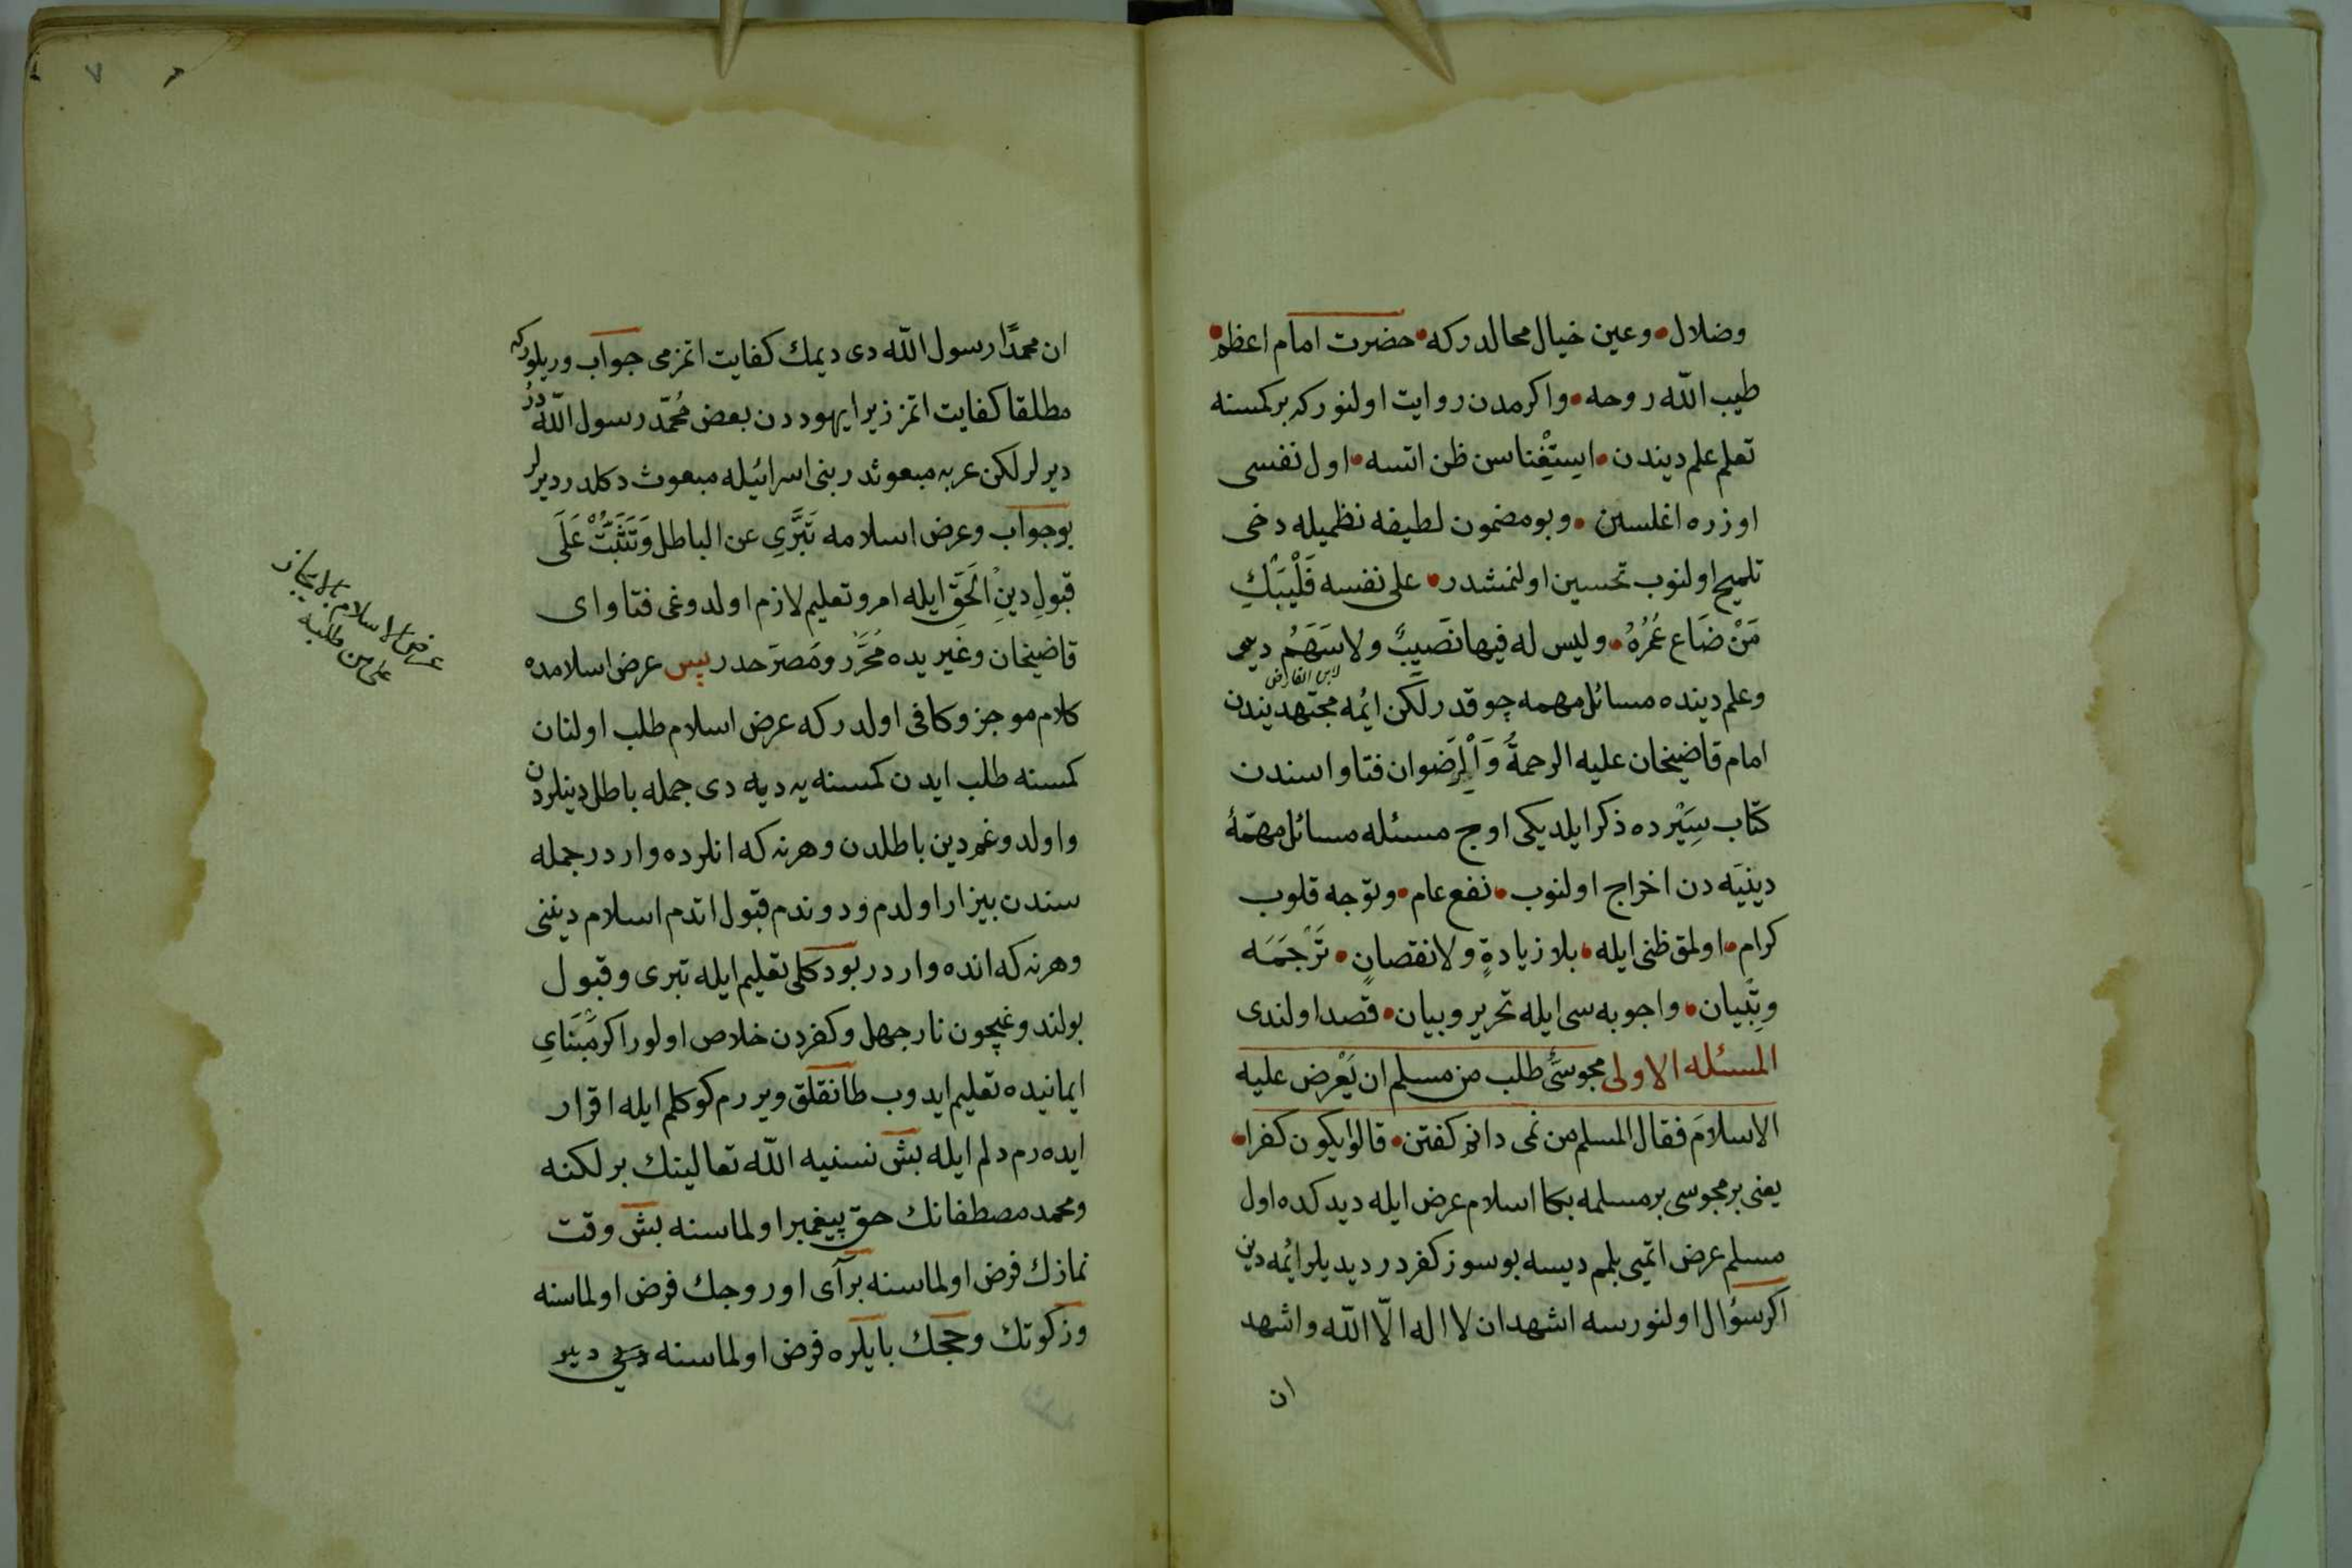 وضلال • وعين خيال محالدركه • حضرت امام اعظم •
طيب الله روحه • واكرمدن روايت اولنوركه بركمسنه
تعلم علم ديندن • ايستِغْناسن ظن اتسه • اول نفسى
اوزره اغلسين • وبو مضمون لطيفه نظميله دخى
تلميح اولنوب تحسين اولنمشدر • على نفسه فَلْيَبْكِ
مَنْ ضَاعَ عُمْرُهُ • وليس له فيها نَصِيبٌ ولا سَهَمُ ديمى
لابن الفارض
وعلم دينده مسائل مهمه چوقدر لكن ائمه مجتهديندن
امام قاضيخان عليه الرحمةُ وَالْرِّضوان فتاواسندن
كتاب سِيَرْده ذكر ايلديكى اوج مسئله مسائل مهمّهٔ
دينيَه دن اخراج اولنوب • نفع عام • وتوجه قلوب
كرام • اولمق ظنى ايله • بلا زيادةٍ ولا نقصانٍ • تَرْجَمَه
وتِبْيان • واجوبه سى ايله تحرير وبيان • قصد اولندى
المسئله الاولى مجوسىٌّ طلب من مسلم ان يَعْرِض عليه
الاسلامَ فقال المسلم من نمى دانم كفتن • قالوا يكون كفرا •
يعنى بر مجوسى بر مسلمه بكا اسلام عرض ايله ديدكده اول
مسلم عرض اتميى بلمم ديسه بو سوز كفردر ديديلر ائمه دين
اكر سؤال اولنورسه اشهد ان لا اله الّا الله واشهد
ان
ان محمدًا رسول الله دى ديمك كفايت اتمزمى جواب وريلوركه
مطلقا كفايت اتمز زيرا يهوددن بعض مُحمّد رسول اللهدُر
ديرلر لكن عربه مبعوثدر بنى اسرائيله مبعوث دكلدر ديرلر
بو جواب وعرض اسلامه تَبَرَّىِ عن الباطل وَتَثَبَّتْ عَلَى
قبولِ دينِ الْحَقّ ايله امر وتعليم لازم اولدوغى فتاواى
قاضيخان وغَيريده مُحَرَّر ومُصرَّحدر پس عرض اسلامده
كلام موجز وكافى اولدركه عرض اسلام طلب اولنان
كمسنه طلب ايدن كمسنه يه ديه دى جمله باطل دينلردن
واولدوغم دين باطلدن وهرنه كه انلرده واردر جمله
سندن بيزار اولدم ودوندم قبول اتدم اسلام دينى
وهرنه كه انده واردر بودكلى تعليم ايله تبرى وقبول
بولندوغيچون نار جهل وكفردن خلاص اولور اكر مَبْنَاىِ
ايمانيده تعليم ايدوب طانقلق ويررم كوكلم ايله اقرار
ايده رم دلم ايله بش نسنيه الله تعالينك برلكنه
ومحمد مصطفانك حق پيغمبر اولماسنه بش وقت
نمازك فرض اولماسنه بر آى اوروجك فرض اولماسنه
وزكوتك وحجك بايلره فرض اولماسنه دير
عرض الاسلام بالايجاز
على من طلبه